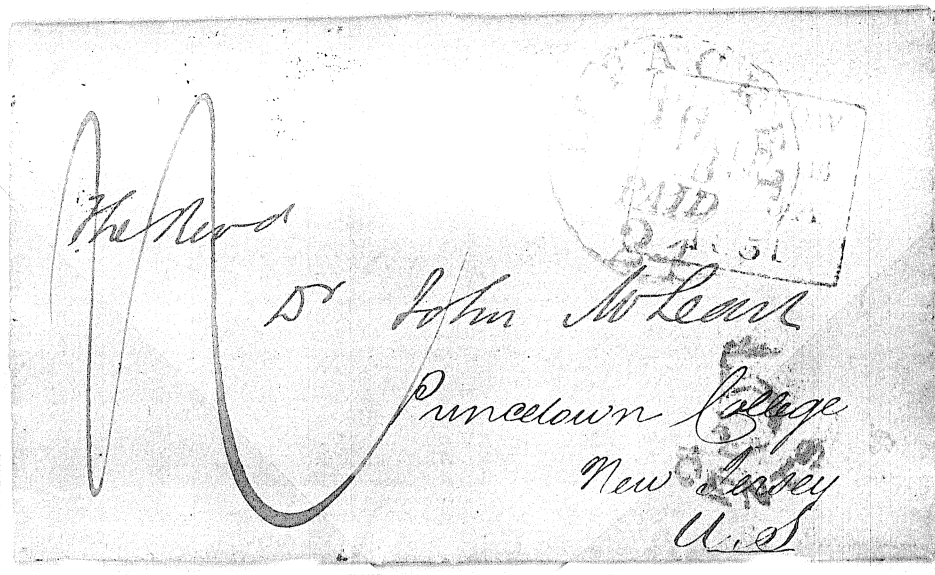 PACKET
PAID
24
51
The Revd
Dr John McLean
Princetown College
New Jersey
U.S